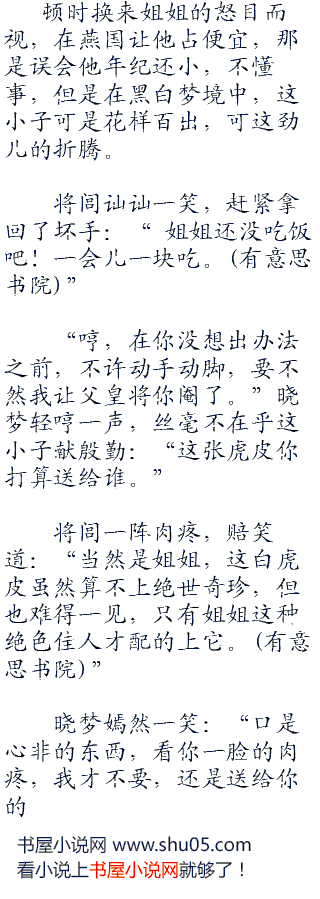 顿时换来姐姐的怒目而
视，在燕国让他占便宜，那
是误会他年纪还小，不懂
事，但是在黑白梦境中，这
小子可是花样百出，可这劲
儿的折腾。
将闾讪讪一笑，赶紧拿
回了坏手：“ 姐姐还没吃饭
吧！一会儿一块吃。(有意思
书院)”
“哼，在你没想出办法
之前，不许动手动脚，要不
然我让父皇将你阉了。”晓
梦轻哼一声，丝毫不在乎这
小子献殷勤：“这张虎皮你
打算送给谁。”
将闾一阵肉疼，赔笑
道：“当然是姐姐，这白虎
皮虽然算不上绝世奇珍，但
也难得一见，只有姐姐这种
绝色佳人才配的上它。(有意
思书院)”
晓梦嫣然一笑：“口是
心非的东西，看你一脸的肉
疼，我才不要，还是送给你
的
书屋小说网 www.shu05.com
看小说上书屋小说网就够了！